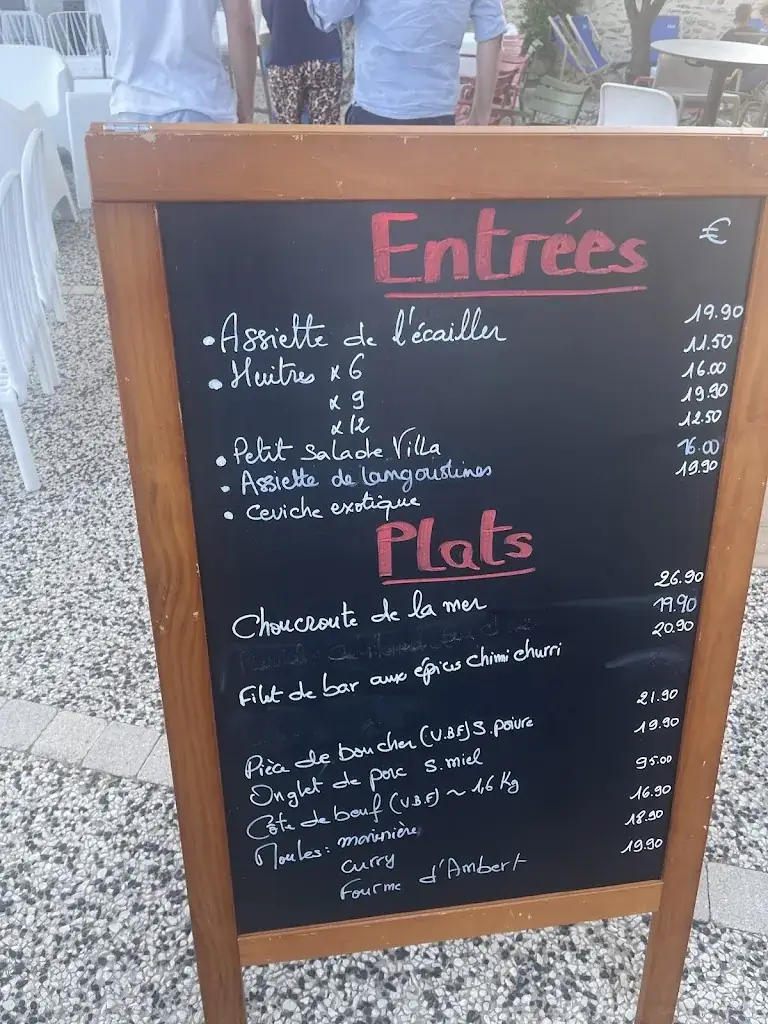 Entrées €
• Assiette de l'écailler 19.90
• Huitres x 6 11.50
x 9 16.00
x 12 19.90
• Petit salade Villa 12.50
• Assiette de langoustines 16.00
• Ceviche exotique 19.90
Plats
Choucroute de la mer 26.90
19.90
Filet de bar aux épices chimi churri 20.90
Pièce de boucher (V.B.F) S. poivre 21.90
Onglet de porc S. miel 19.90
Côte de bœuf (V.B.F) ~ 1,6 Kg 95.00
Moules: marinière 16.90
curry 18.90
Fourme d'Ambert 19.90